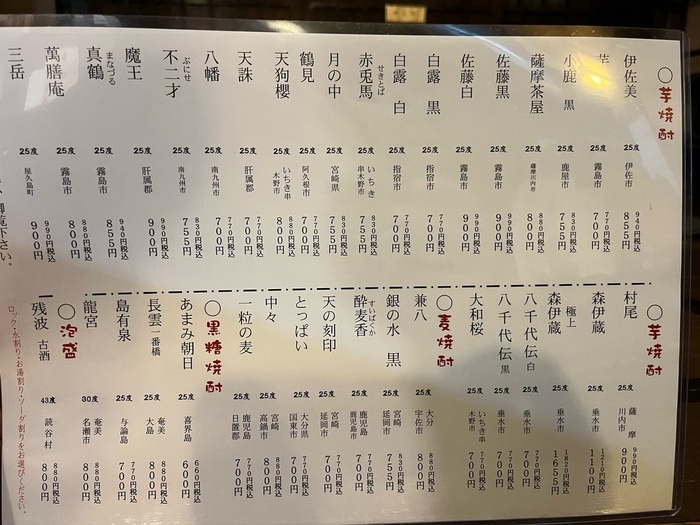 ○芋焼酎
伊佐美 25度 伊佐市 940円税込 855円
25度 霧島市 770円税込 700円
小鹿 黒 25度 鹿屋市 830円税込 755円
薩摩茶屋 25度 薩摩川内市 880円税込 800円
佐藤黒 25度 霧島市 990円税込 900円
佐藤白 25度 霧島市 990円税込 900円
白露 黒 25度 指宿市 770円税込 700円
白露 白 25度 指宿市 770円税込 700円
せきとば
赤兎馬 25度 いちき串木野市 830円税込 755円
月の中 25度 宮崎県 755円
鶴見 25度 阿久根市 770円税込 700円
天狗櫻 25度 いちき串木野市 880円税込 800円
天誅 25度 肝属郡 770円税込 700円
八幡 25度 南九州市 770円税込 700円
ぶにせ
不二才 25度 南九州市 830円税込 755円
魔王 25度 肝属郡 990円税込 900円
まなづる
真鶴 25度 霧島市 940円税込 855円
萬膳庵 25度 霧島市 880円税込 800円
三岳 25度 屋久島町 990円税込 900円
○芋焼酎
村尾 25度 薩摩川内市 990円税込 900円
森伊蔵 25度 垂水市 1210円税込 1100円
極上
森伊蔵 25度 垂水市 1820円税込 1655円
八千代伝 白 25度 垂水市 770円税込 700円
八千代伝 黒 25度 垂水市 770円税込 700円
大和桜 25度 いちき串木野市 770円税込 700円
○麦焼酎
兼八 25度 大分宇佐市 880円税込 800円
銀の水 黒 25度 宮崎延岡市 830円税込 755円
すいばくか
酔麦香 25度 鹿児島鹿児島市 770円税込 700円
天の刻印 25度 宮崎延岡市 770円税込 700円
とっぱい 25度 大分県国東市 770円税込 700円
中々 25度 宮崎高鍋市 880円税込 800円
一粒の麦 25度 鹿児島日置郡 770円税込 700円
○黒糖焼酎
あまみ朝日 25度 喜界島 660円税込 600円
長雲 一番橋 25度 奄美大島 880円税込 800円
島有泉 25度 与論島 770円税込 700円
龍宮 30度 奄美名瀬市 880円税込 800円
○泡盛
残波 古酒 43度 読谷村 880円税込 800円
ロック・水割り・お湯割り・ソーダ割りをお選びください。